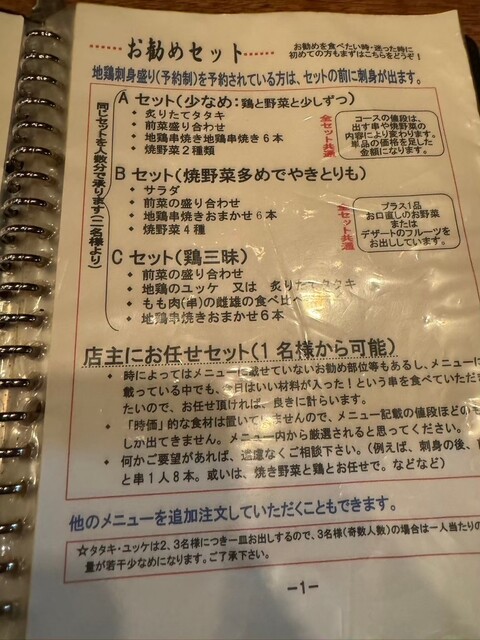 お勧めセット
お勧めを食べたい時・迷った時に
初めての方もまずはこちらをどうぞ！
地鶏刺身盛り(予約制)を予約されている方は、セットの前に刺身が出ます。
同じセットを人数分で承ります(二名様より)
A セット(少なめ：鶏と野菜と少しずつ)
・ 炙りたてタタキ
・ 前菜の盛り合わせ
・ 地鶏串焼き地鶏串焼き6本
・ 焼野菜2種類
全セット共通
コースの値段は、
出す串や焼野菜の
内容により変わります。
単品の価格を足した
金額になります。
B セット(焼野菜多めでやきとりも)
・ サラダ
・ 前菜の盛り合わせ
・ 地鶏串焼きおまかせ6本
・ 焼野菜4種
全セット共通
プラス1品
お口直しのお野菜
または
デザートのフルーツを
お出ししています。
C セット(鶏三昧)
・ 前菜の盛り合わせ
・ 地鶏のユッケ 又は 炙りたてタタキ
・ もも肉(串)の雌雄の食べ比べ
・ 地鶏串焼きおまかせ6本
店主にお任せセット(1名様から可能)
・ 時によってはメニューに載せていないお勧め部位等もあるし、メニューに
載っている中でも、今日はいい材料が入った！という串を食べていただき
たいので、お任せ頂ければ、良きに計らいます。
・ 「時価」的な食材は置いていませんので、メニュー記載の値段ほどのも
しか出てきません。メニュー内から厳選されると思ってください。
・ 何かご要望があれば、遠慮なくご相談下さい。(例えば、刺身の後、
と串1人8本。或いは、焼き野菜と鶏とお任せで。などなど)
他のメニューを追加注文していただくこともできます。
☆タタキ・ユッケは2、3名様につき一皿お出しするので、3名様(奇数人数)の場合は一人当たりの
量が若干少なめになります。ご了承下さい。
-1-